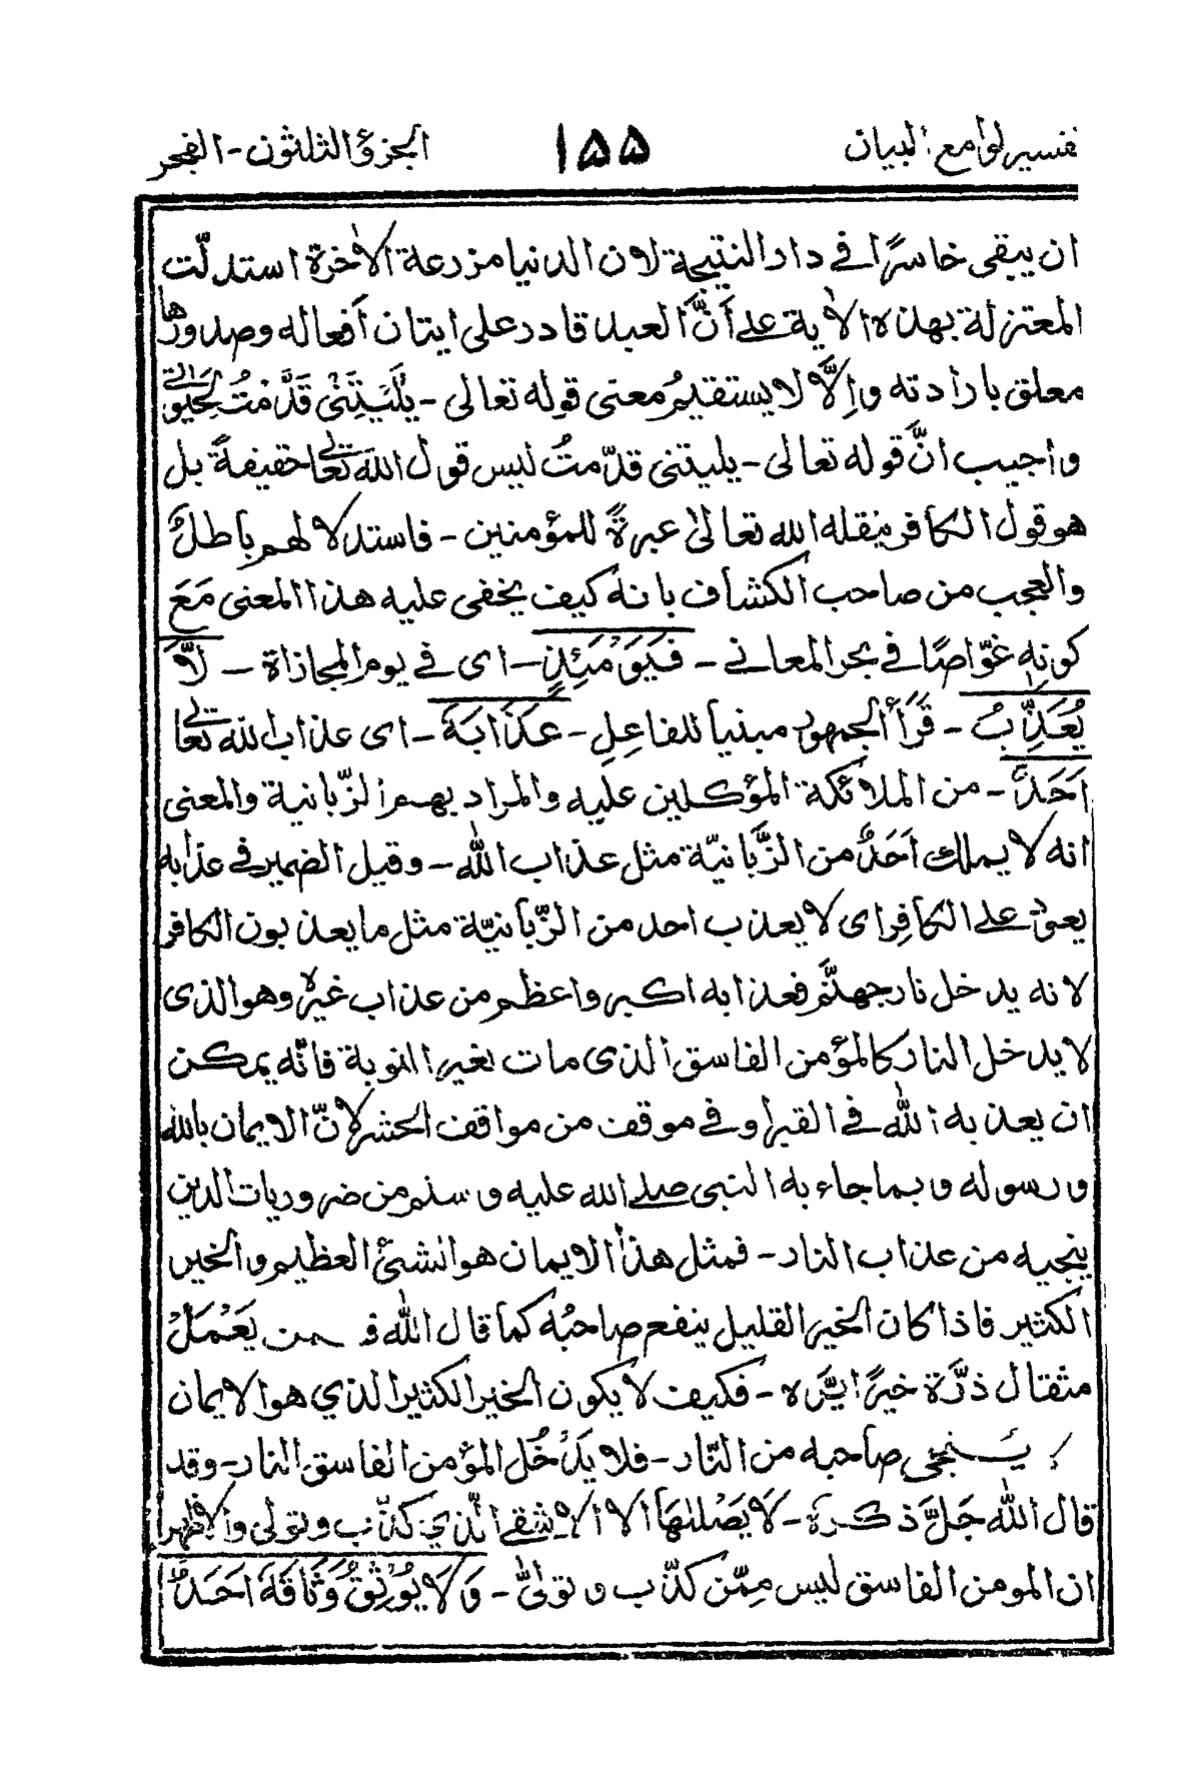 تفسير لوامع البيان ۱۵۵ الجزؤ الثلثون - الفجر
ان يبقى خاسرًا في دار النتيجة لان الدنيا مزرعة الاٰخرة استدلّت
المعتزلة بهذه الاٰية على أنَّ العبد قادر على ايتان أفعاله وصدورها
معلق بارادته وإلَّا لا يستقيمُ معنى قوله تعالى - يٰلَيْتَنِىْ قَدَّمْتُ لِحَيَوتي
واجيب انَّ قوله تعالى - يليتنى قدّمتُ ليس قول الله تعالى حقيقةً بل
هو قول الكافر ينقله الله تعالىٰ عبرةً للمؤمنين - فاستدلالهم باطلٌ
والعجب من صاحب الكشاف بانه كيف يخفى عليه هذا المعنى مَعَ
كونِه غوّاصًا في بحر المعاني - فَيَوْمَئِذٍ - اى في يوم المجازاة - لَّا
يُعَذِّبُ - قَرَأَ الجمهور مبنيا للفاعِلِ - عَذَابَهٗ - اى عذاب الله تعالى
اَحَدٌ - من الملائكة المؤكلين عليه والمراد بهم الزّبانية والمعنى
انه لا يملك اَحَدٌ من الزَّبانيّة مثل عذاب الله - وقيل الضمير في عذابه
يعود على الكافِر اى لا يعذب احد من الزّبانيّة مثل ما يعذبون الكافر
لانه يدخل نار جهنّم فعذابه اكبر واعظم من عذاب غيره وهو الذى
لا يدخل النار كالمؤمن الفاسق الذى مات بغير التوبة فانّه يمكن
ان يعذبه الله في القبر او في موقف من مواقف الحشر لانّ الايمان بالله
ورسوله وبما جاء به النبى صلى الله عليه وسلم من ضروريات الدين
ينجيه من عذاب النار - فمثل هذا الايمان هو الشئ العظيم والخير
الكثير فاذا كان الخير القليل ينفع صاحبُه كما قال الله فمن يَعْمَلْ
مثقال ذرَّة خيرًا يَّره - فكيف لا يكون الخير الكثير الذي هو الايمان
ينجى صاحبه من النّار - فلا يَدْخُل المؤمن الفاسق النار - وقد
قال الله جَلَّ ذكره - لَا يَصْلٰهَا الا الاشقى الّذي كذّب وتولى والاظهر
ان المومن الفاسق ليس مِمّن كذّب وتولىّٰ - وَلَا يُوْثِقُ وَثَاقَهٗ اَحَدٌ